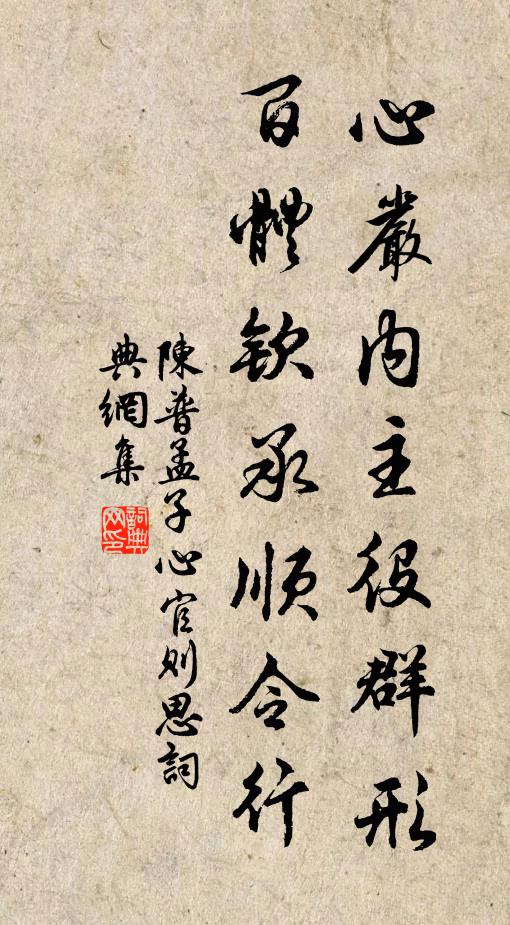 心嚴內主役群形
百體欽承順令行
陳普孟子心官則思詞
典網集
詞典网印